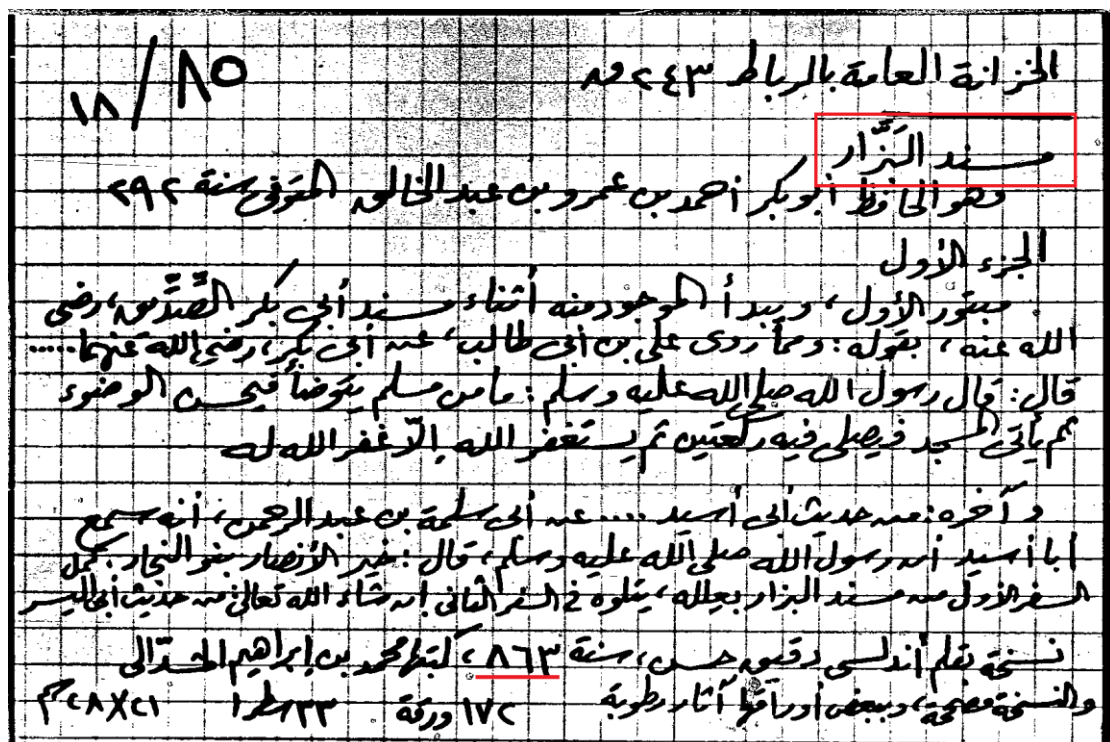 الخزانة العامة بالرباط ٢٤٣ ق
٨٥ / ١٨
مسند البَزَّار
وهو الحافظ أبو بكر أحمد بن عمرو بن عبد الخالق المتوفى سنة ٢٩٢
الجزء الأول
مبتور الأول، ويبدأ الموجود منه أثناء مسند أبي بكر الصِّدِّيق، رضي
الله عنه، بقوله: ومما روى علي بن أبي طالب، عن أبي بكر، رضي الله عنهما .....
قال: قال رسول الله صلى الله عليه وسلم: ما من مسلم يتوضأ فيحسن الوضوء
ثم يأتي المسجد فيصلي فيه ركعتين ثم يستغفر الله إلّا غفر الله له
وآخره: من حديث أبي أسيد .... عن أبي سلمة بن عبد الرحمن، أنه سمع
أبا أسيد أن رسول الله صلى الله عليه وسلم، قال: خير الأنصار بنو النجار. كمل
السفر الأول من مسند البزار بعلله، يتلوه في السفر الثاني إن شاء الله تعالى من حديث أبي اليسر
نسخة بقلم أندلسي دقيق حسن، سنة ٨٦٣، كتبها محمد بن إبراهيم المشدّالي
والنسخة مصححة، وببعض أوراقها آثار رطوبة
١٧٢ ورقة ٣٣ سطرا ٢١×٢٨ سم